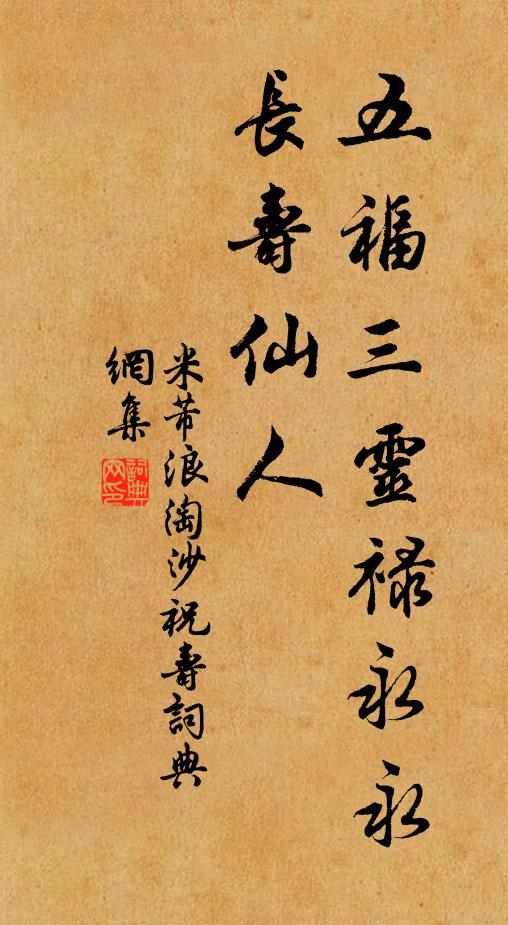 五福三靈禄永永
長壽仙人
米芾浪淘沙祝壽詞典
網集
詞典网印